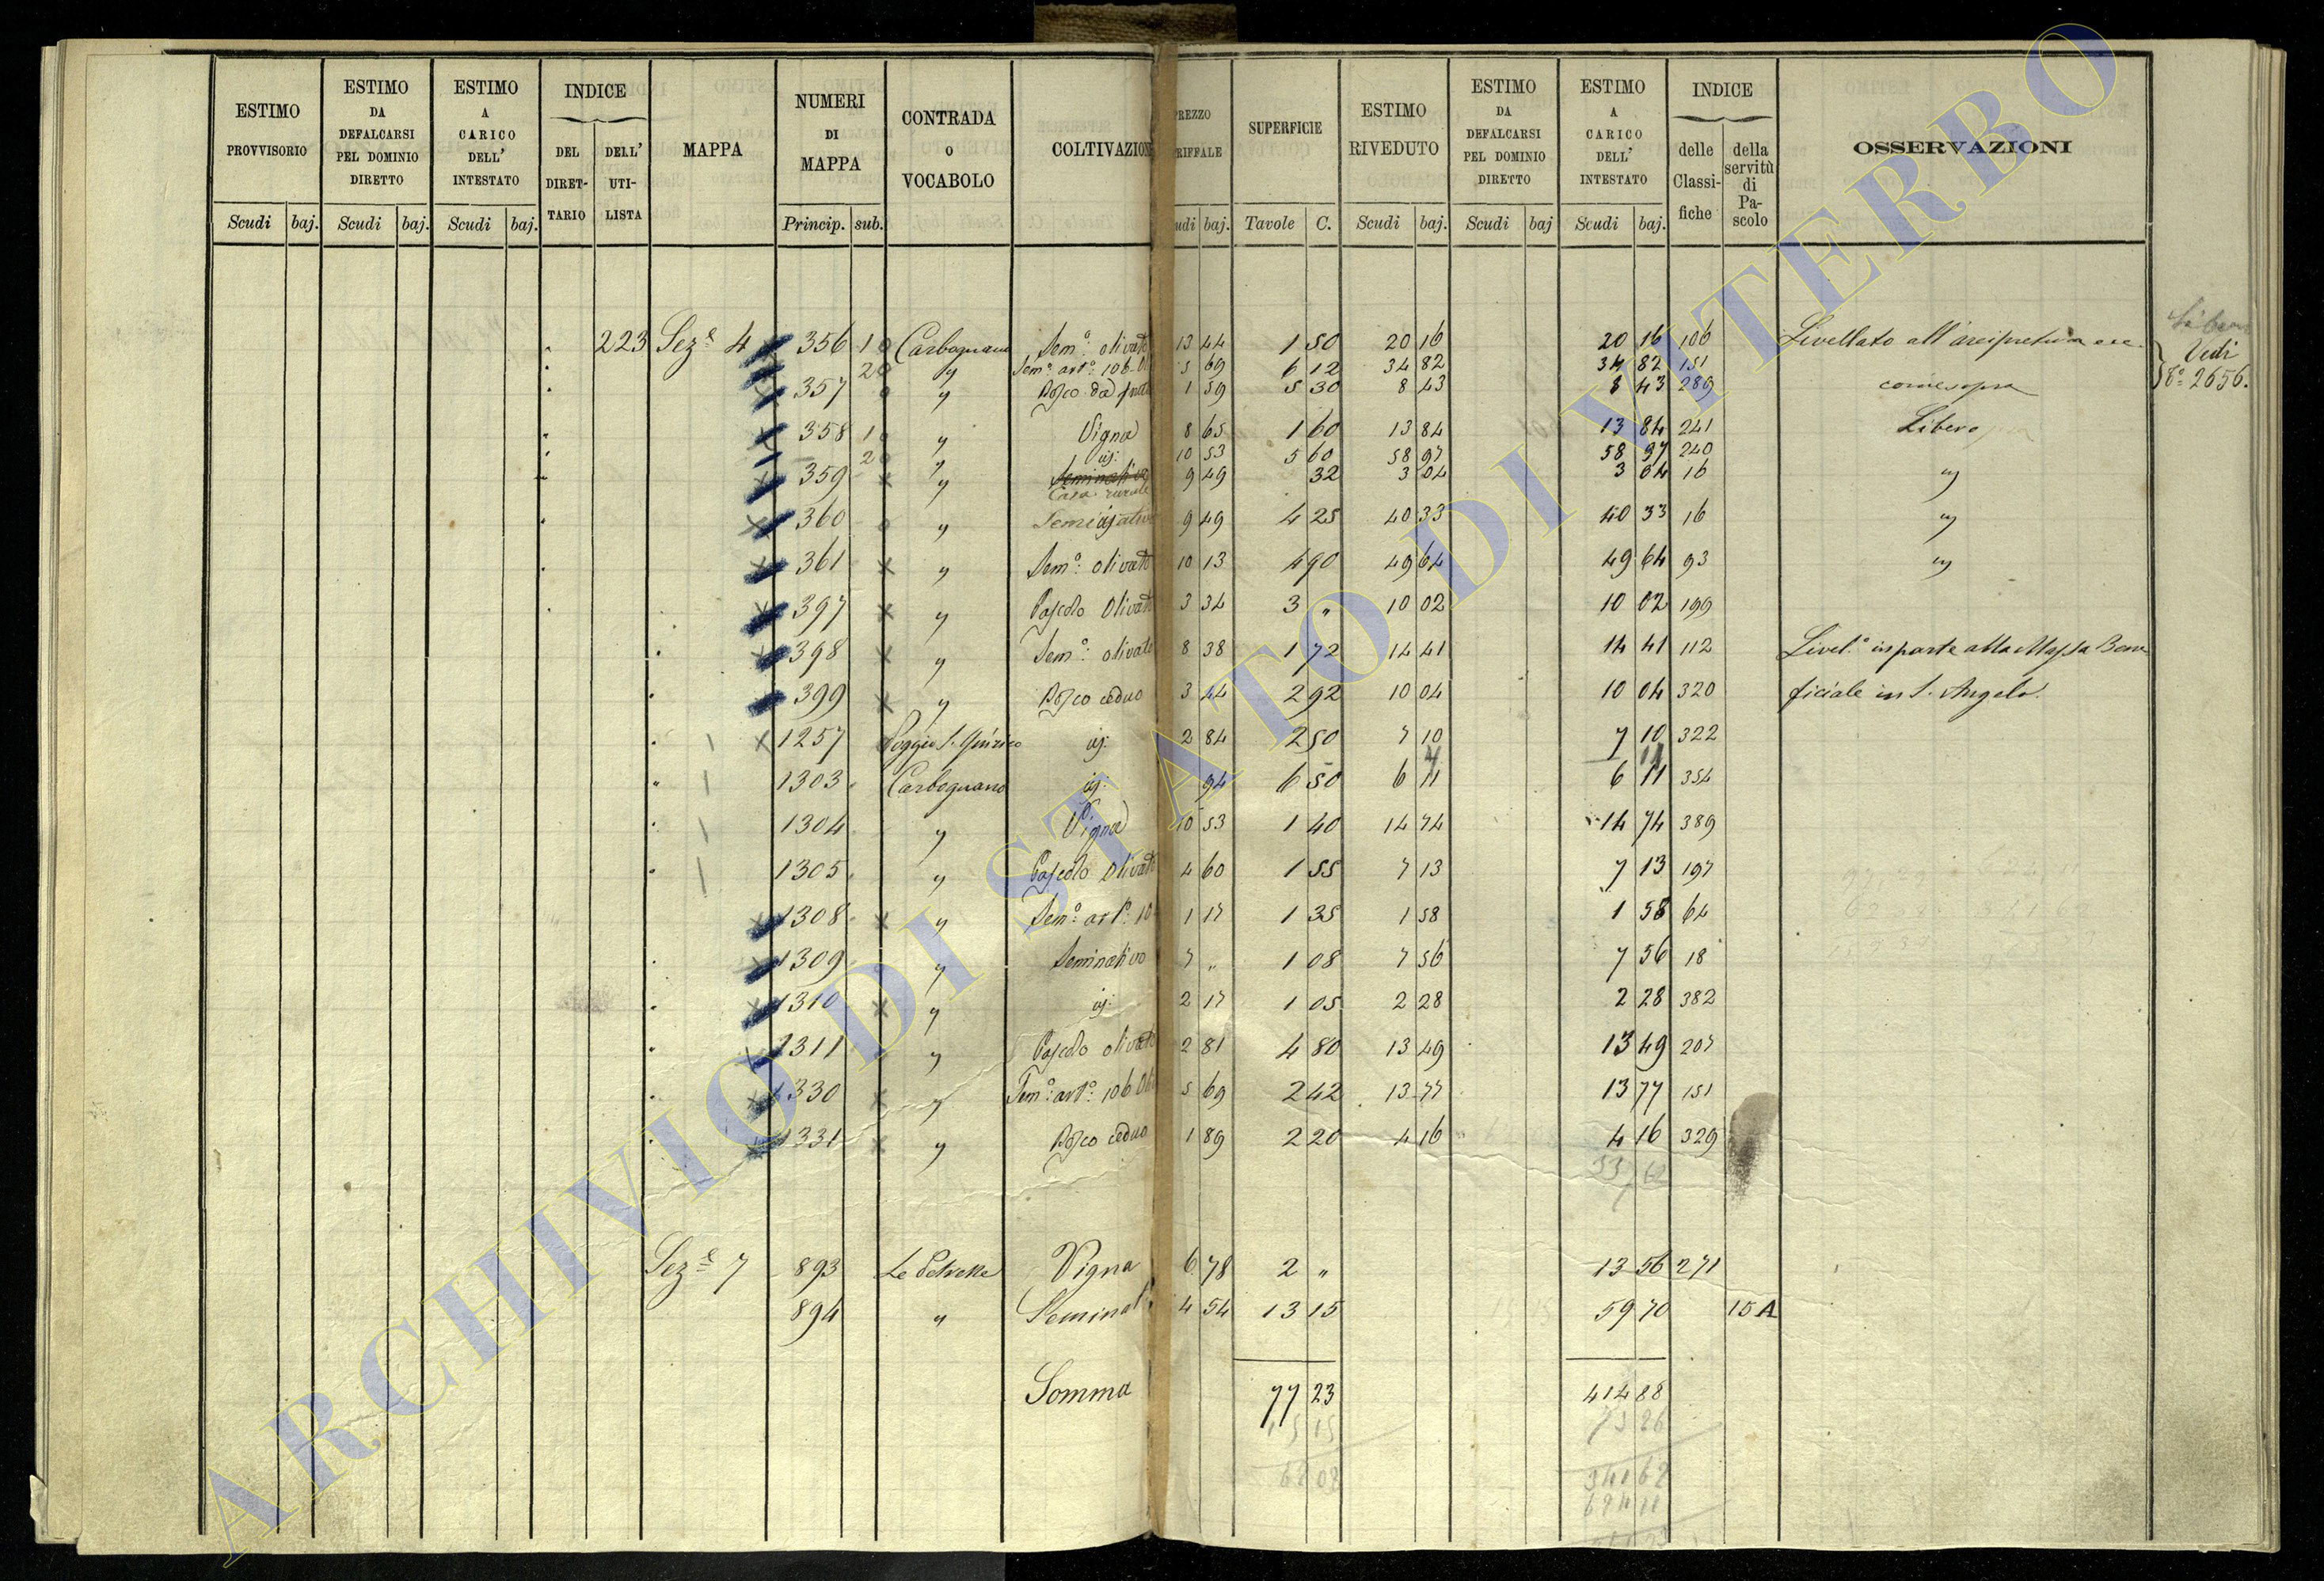 ESTIMO PROVVISORIO
ESTIMO DA DEFALCARSI PEL DOMINIO DIRETTO
ESTIMO A CARICO DELL' INTESTATO
INDICE
DEL DIRET-TARIO
DELL' UTI-LISTA
MAPPA
NUMERI DI MAPPA
CONTRADA O VOCABOLO
COLTIVAZION
REZZO RIFFALE
SUPERFICIE
ESTIMO RIVEDUTO
ESTIMO DA DEFALCARSI PEL DOMINIO DIRETTO
ESTIMO A CARICO DELL' INTESTATO
INDICE
delle Classi-fiche
della servitù di Pa-scolo
OSSERVAZIONI
Scudi baj. Scudi baj. Scudi baj. Princip. sub. udi baj. Tavole C. Scudi baj. Scudi baj Scudi baj.
223 Sez.e 4 356 1 Carbognano Sem.o olivato 13 44 1 50 20 16 20 16 106 Livellato all'arcipretura
2 " Sem.o art.o 5 69 6 12 34 82 34 82 151 Vedi
357 " Bosco da 1 59 5 30 8 43 8 43 289 come sopra 2656.
358 1 " Vigna 8 65 1 60 13 84 13 84 241 Libero
2 " id: 10 53 5 60 58 97 58 97 240
359 " Seminativo 9 49 32 3 04 3 04 16 "
Casa rurale
360 " Seminativo 9 49 4 25 40 33 40 33 16 "
361 " Sem.o olivato 10 13 4 90 49 64 49 64 93 "
397 " Pascolo Olivato 3 34 3 " 10 02 10 02 199
398 " Sem.o olivato 8 38 1 72 14 41 14 41 112 Livel.o in parte alla Massa Bene
399 " Bosco ceduo 3 44 2 92 10 04 10 04 320 ficiale in S. Angelo.
1257 Poggio S. Quirico id: 2 84 2 50 7 10 7 10 322
1303 Carbognano id: 94 6 50 6 11 6 11 354
1304 " Vigna 10 53 1 40 14 74 14 74 389
1305 " Pascolo Olivato 4 60 1 55 7 13 7 13 197
1308 " Sem.o art.o 10 1 17 1 35 1 58 1 58 64
1309 " Seminativo 7 " 1 08 7 56 7 56 18
1310 " id: 2 17 1 05 2 28 2 28 382
1311 " Pascolo olivato 2 81 4 80 13 49 13 49 207
1330 " Sem.o art.o 5 69 2 42 13 77 13 77 151
1331 " Bosco ceduo 1 89 2 20 4 16 4 16 329
Sez.e 7 893 Le Vigna 6 78 2 " 13 56 271
894 " Seminat.o 4 54 13 15 59 70 15 A
Somma 77 23 414 88
15 15 73 26
62 08 341 62
ARCHIVIO DI STATO DI VITERBO